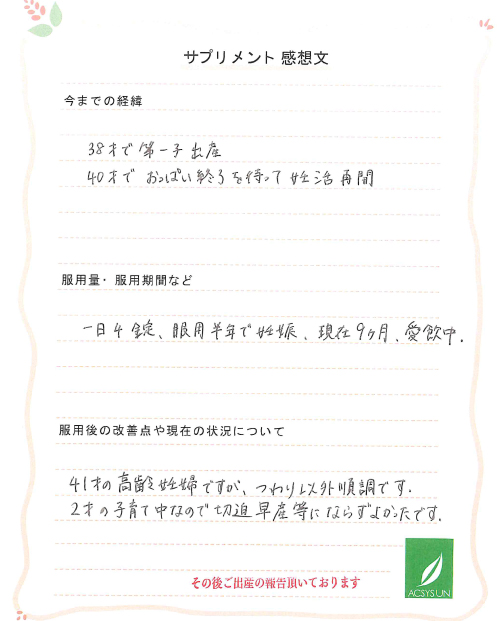 サプリメント 感想文
今までの経緯
38才で第一子出産
40才で おっぱい終了を待って 妊活再開
服用量・服用期間など
一日4錠、服用半年で妊娠、現在9ヶ月、愛飲中.
服用後の改善点や現在の状況について
41才の高齢妊婦ですが、つわり以外順調です.
2才の子育て中なので切迫早産等にならずよかったです.
その後ご出産の報告頂いております
ACSYSUN